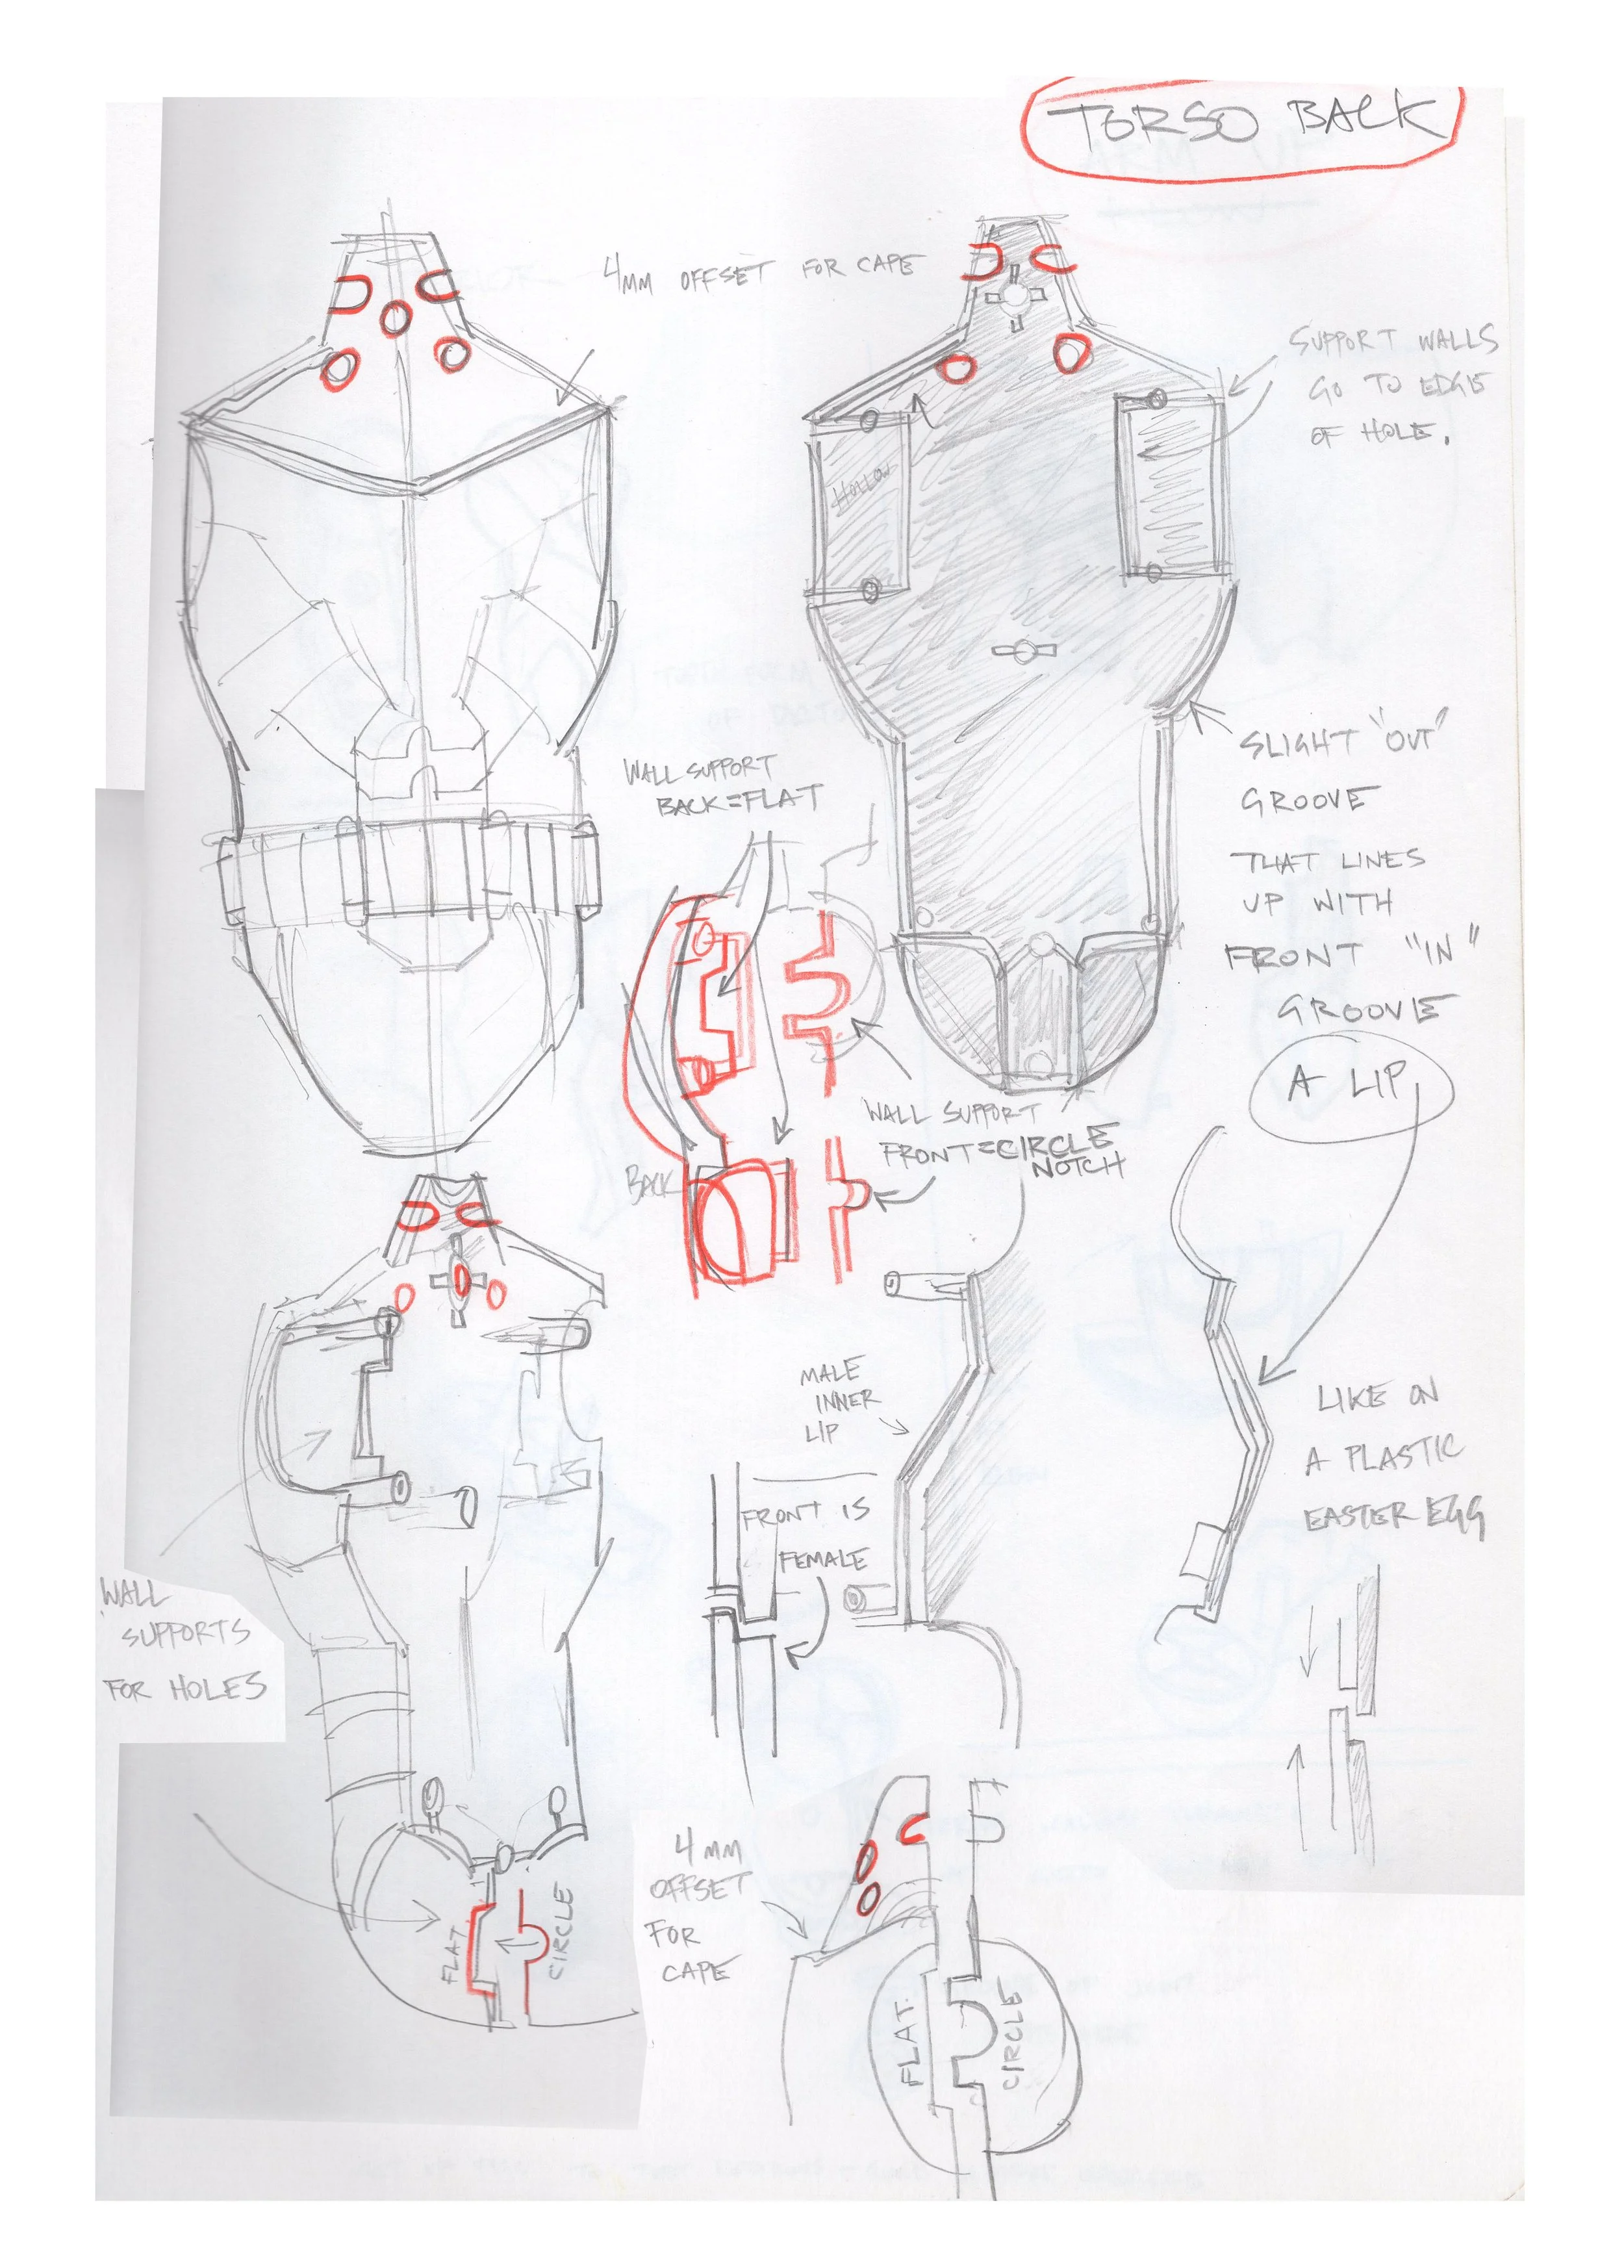 TORSO BACK
4MM OFFSET FOR CAPE
SUPPORT WALLS
GO TO EDGE
OF HOLE.
HOLLOW
SLIGHT "OUT"
GROOVE
THAT LINES
UP WITH
FRONT "IN"
GROOVE
A LIP
WALL SUPPORT
BACK=FLAT
WALL SUPPORT
FRONT=CIRCLE
NOTCH
BACK
MALE
INNER
LIP
LIKE ON
A PLASTIC
EASTER EGG
FRONT IS
FEMALE
WALL
SUPPORTS
FOR HOLES
FLAT
CIRCLE
4MM
OFFSET
FOR
CAPE
FLAT.
CIRCLE